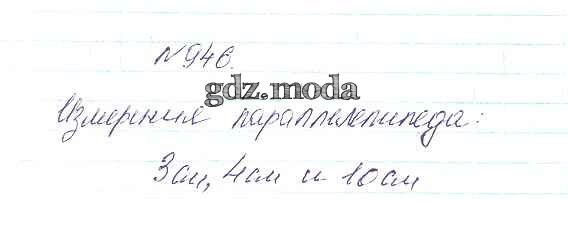 №946.
gdz.moda
Измерения параллелепипеда:
3см, 4см и 10см